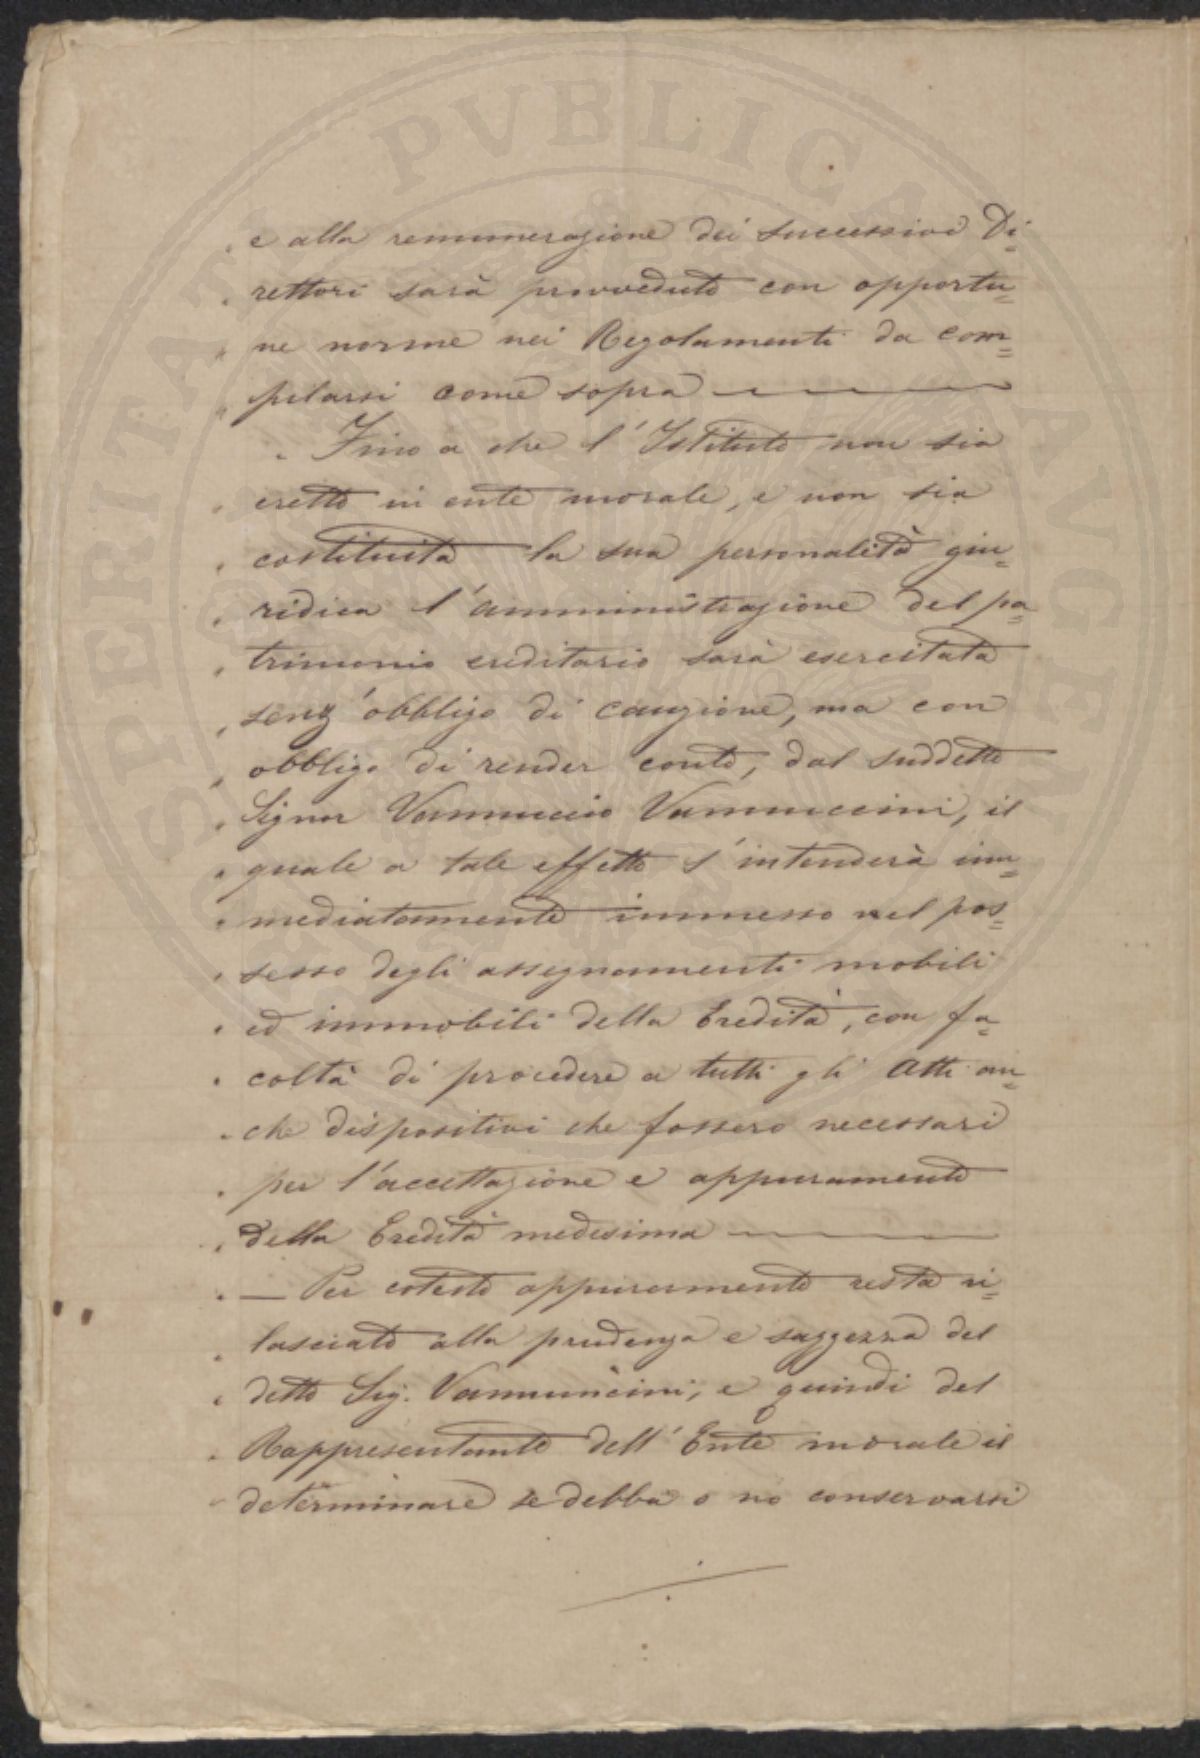 e alla remunerazione dei successivi Di=
rettori sarà provveduto con opportu=
ne norme nei Regolamenti da com=
pilarsi come sopra
Fino a che l'Istituto non sia
eretto in ente morale, e non sia
costituita la sua personalità giu=
ridica l'amministrazione del pa=
trimonio ereditario sarà esercitata
senz'obbligo di cauzione, ma con
obbligo di render conto, dal suddetto
Signor Vannuccio Vannuccini, il
quale a tale effetto s'intenderà im=
mediatamente immesso nel pos=
sesso degli assegnamenti mobili
ed immobili della Eredità, con fa=
coltà di procedere a tutti gli Atti an=
che dispositivi che fossero necessari
per l'accettazione e appuramento
della Eredità medesima
— Per cotesto appuramento resta ri=
lasciato alla prudenza e saggezza del
detto Sig. Vannuncini, e quindi del
Rappresentante dell'Ente morale il
determinare se debba o no conservarsi
SPERITATI PVBLICAE AVGEN